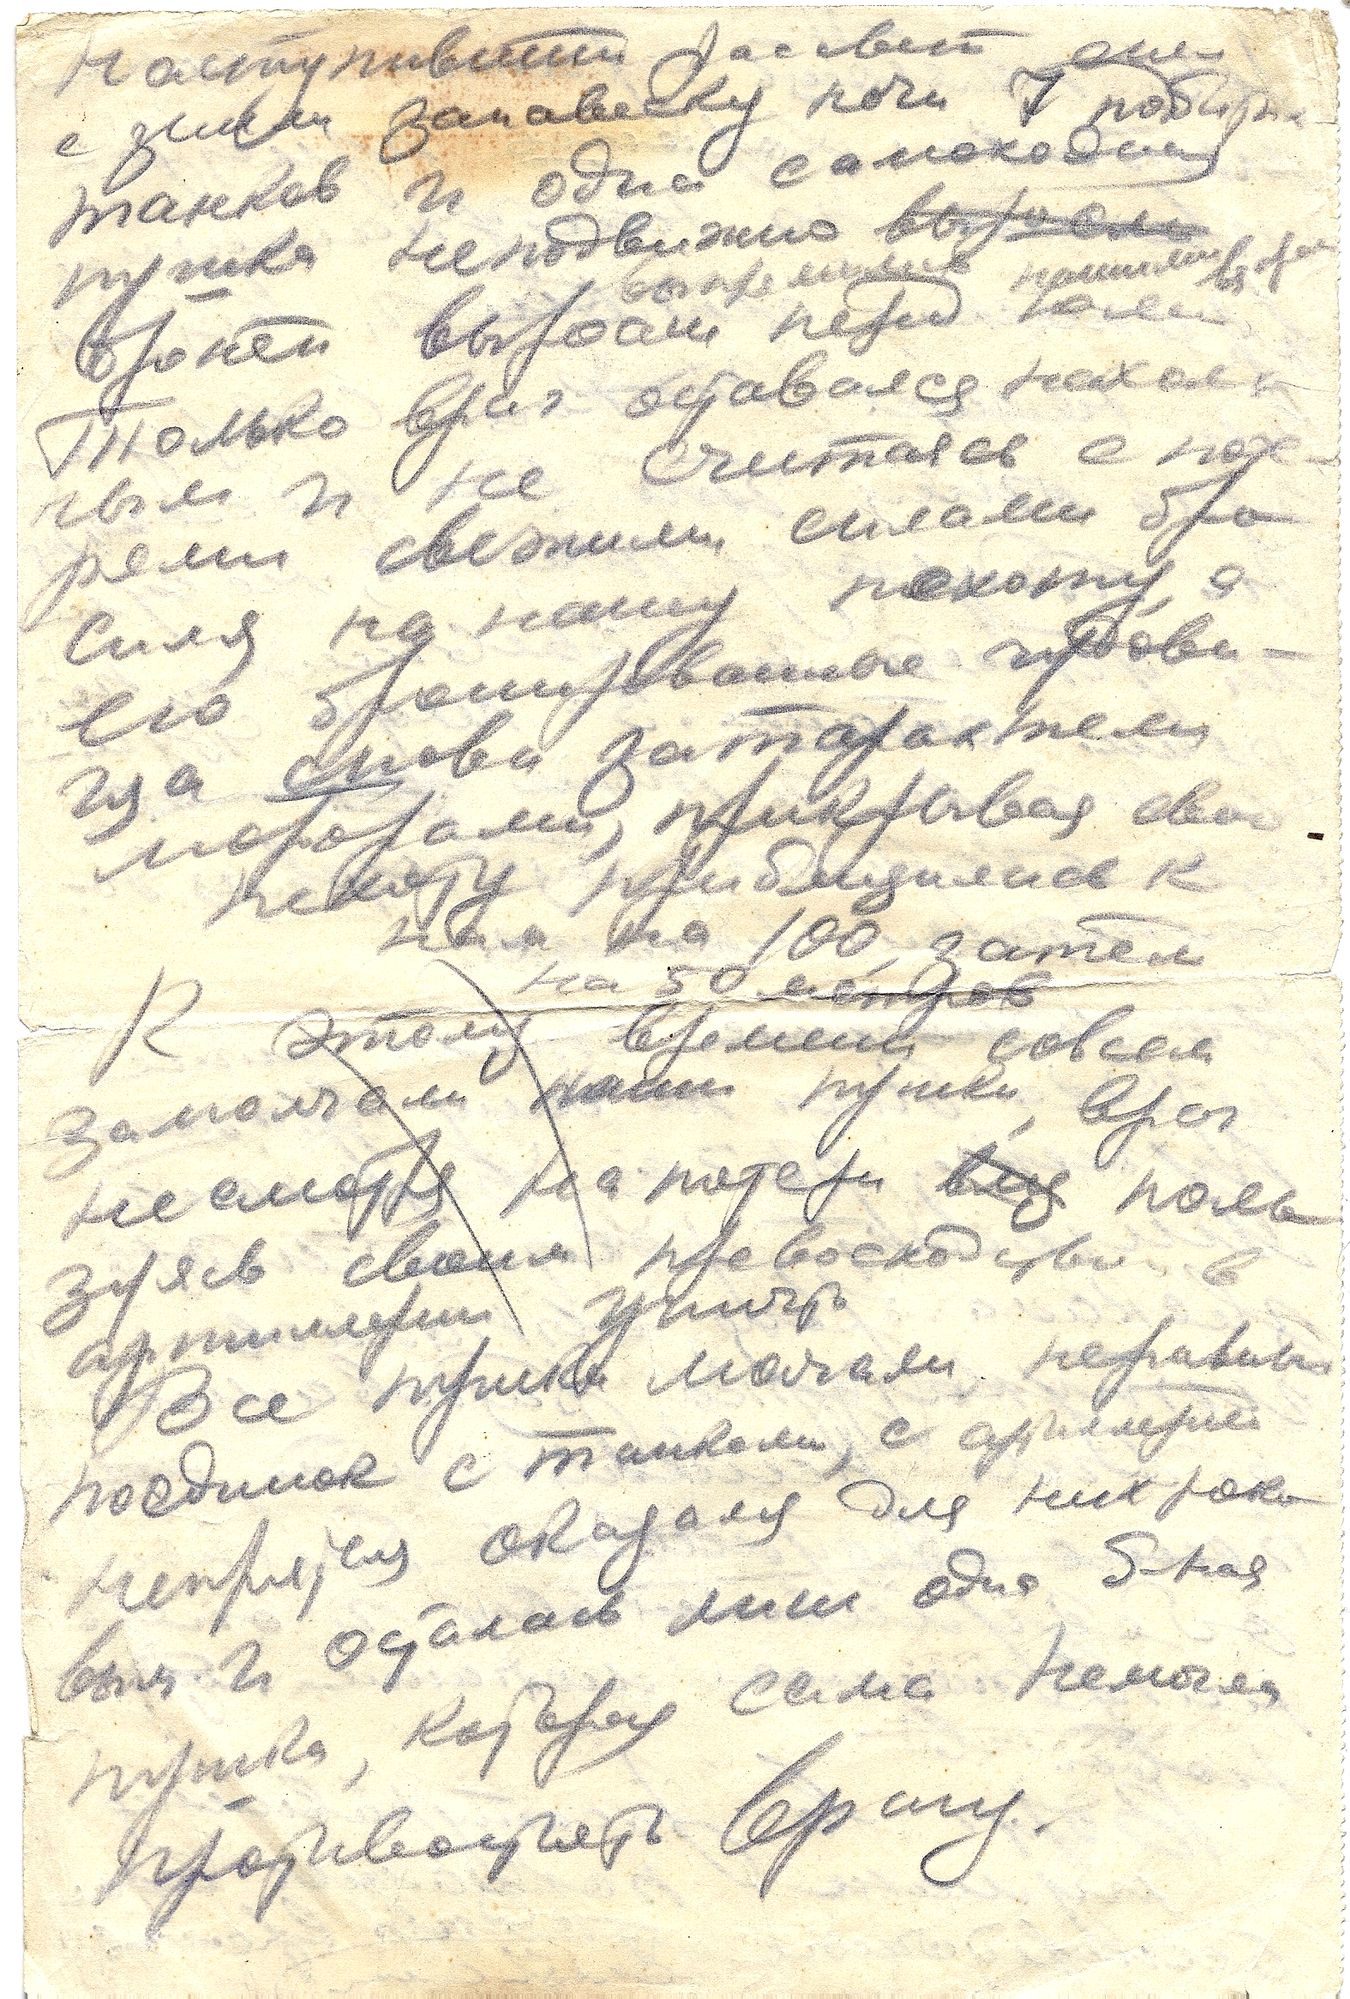 Наступивший рассвет снял
с земли занавеску ночи 7 подбитых
танков и одна самоходная
пушка неподвижно выросли
бронёй выросли перед нами
Только враг оставался нахаль-
ным и не считаясь с поте-
рями свежими силами бро
сился на нашу пехоту, а
его бронированные чудови-
ща снова затарахтели
моторами, прикрывая свою
пехоту приблизились к
нам на 100, затем
на 50 метров
К этому времени совсем
замолчали наши пушки, враг
несмотря на потери поль
зуясь своим превосходством в
артиллерии
Все пушки молчали, неравный
поединок с танками, с артилерией
неприятеля оказался для них роко
вым и осталась лиш одна 5-ная
пушка, которая сама немогла
противостоять врагу.